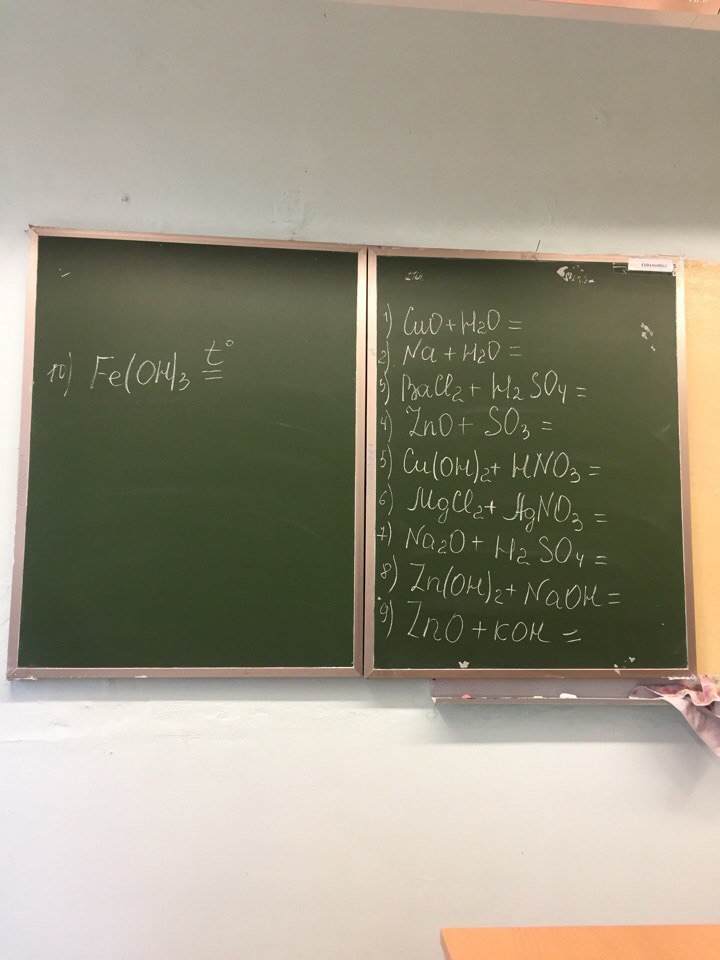 10) Fe(OH)3 t° =
1) CuO + H2O =
2) Na + H2O =
3) BaCl2 + H2SO4 =
4) ZnO + SO3 =
5) Cu(OH)2 + HNO3 =
6) MgCl2 + AgNO3 =
7) Na2O + H2SO4 =
8) Zn(OH)2 + NaOH =
9) ZnO + KOH =